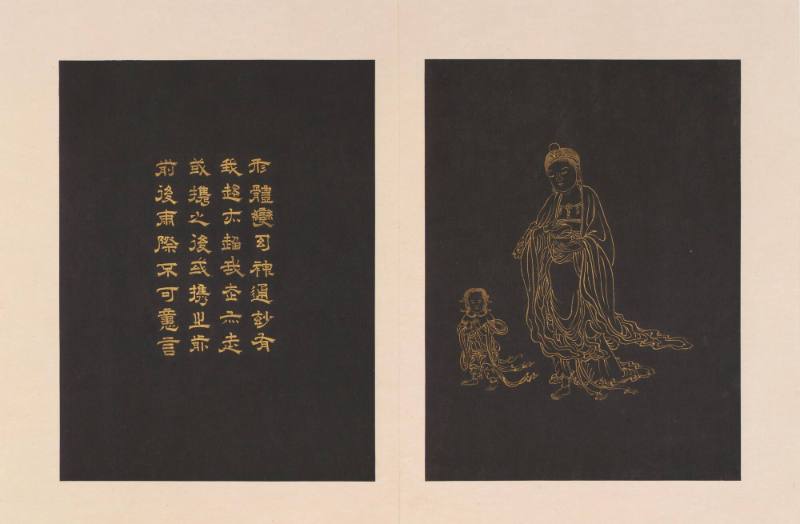 形體變幻神通玅有
我起亦起我走亦走
或攜之後或攜之前
前後兩際不可意言